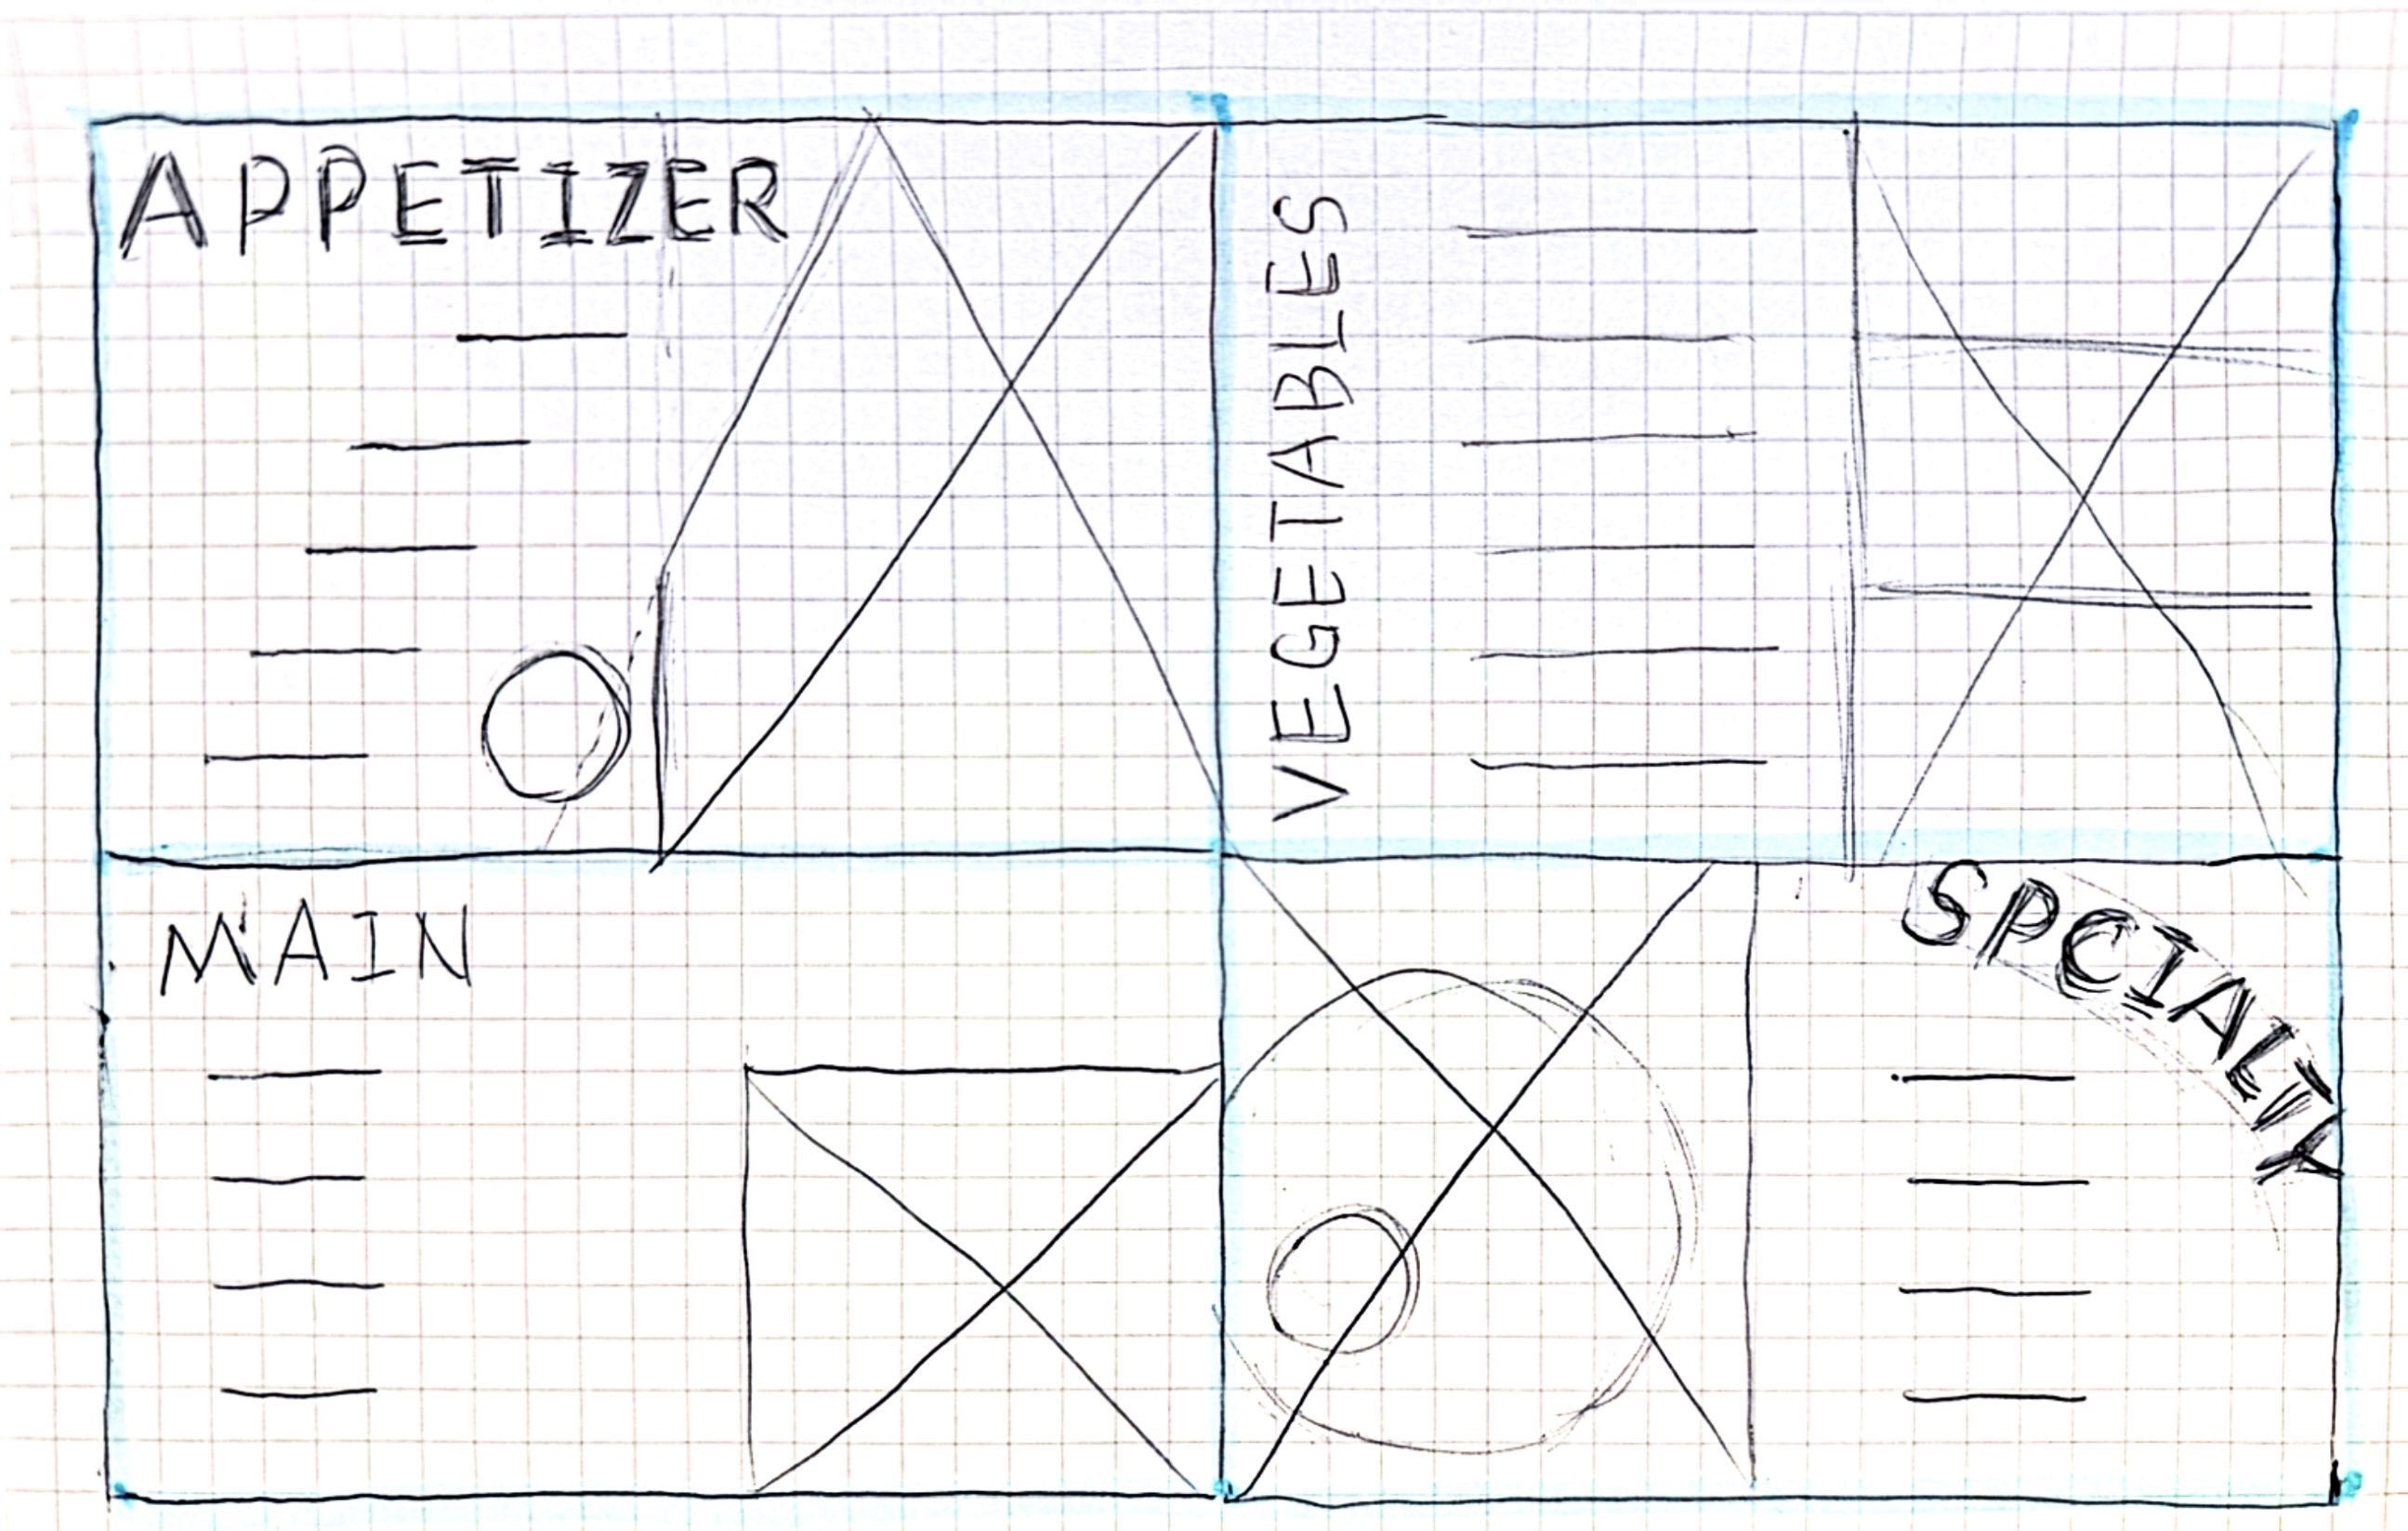 APPETIZER
VEGETABLES
MAIN
SPCIALTY